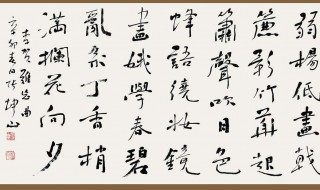 弱楊低畫戟
簾影竹華起
簫聲吹日色
蜂語繞妝鏡
畫蛾學春碧
亂系丁香梢
滿欄花向夕
李賀難忘曲
辛卯 日張坤山